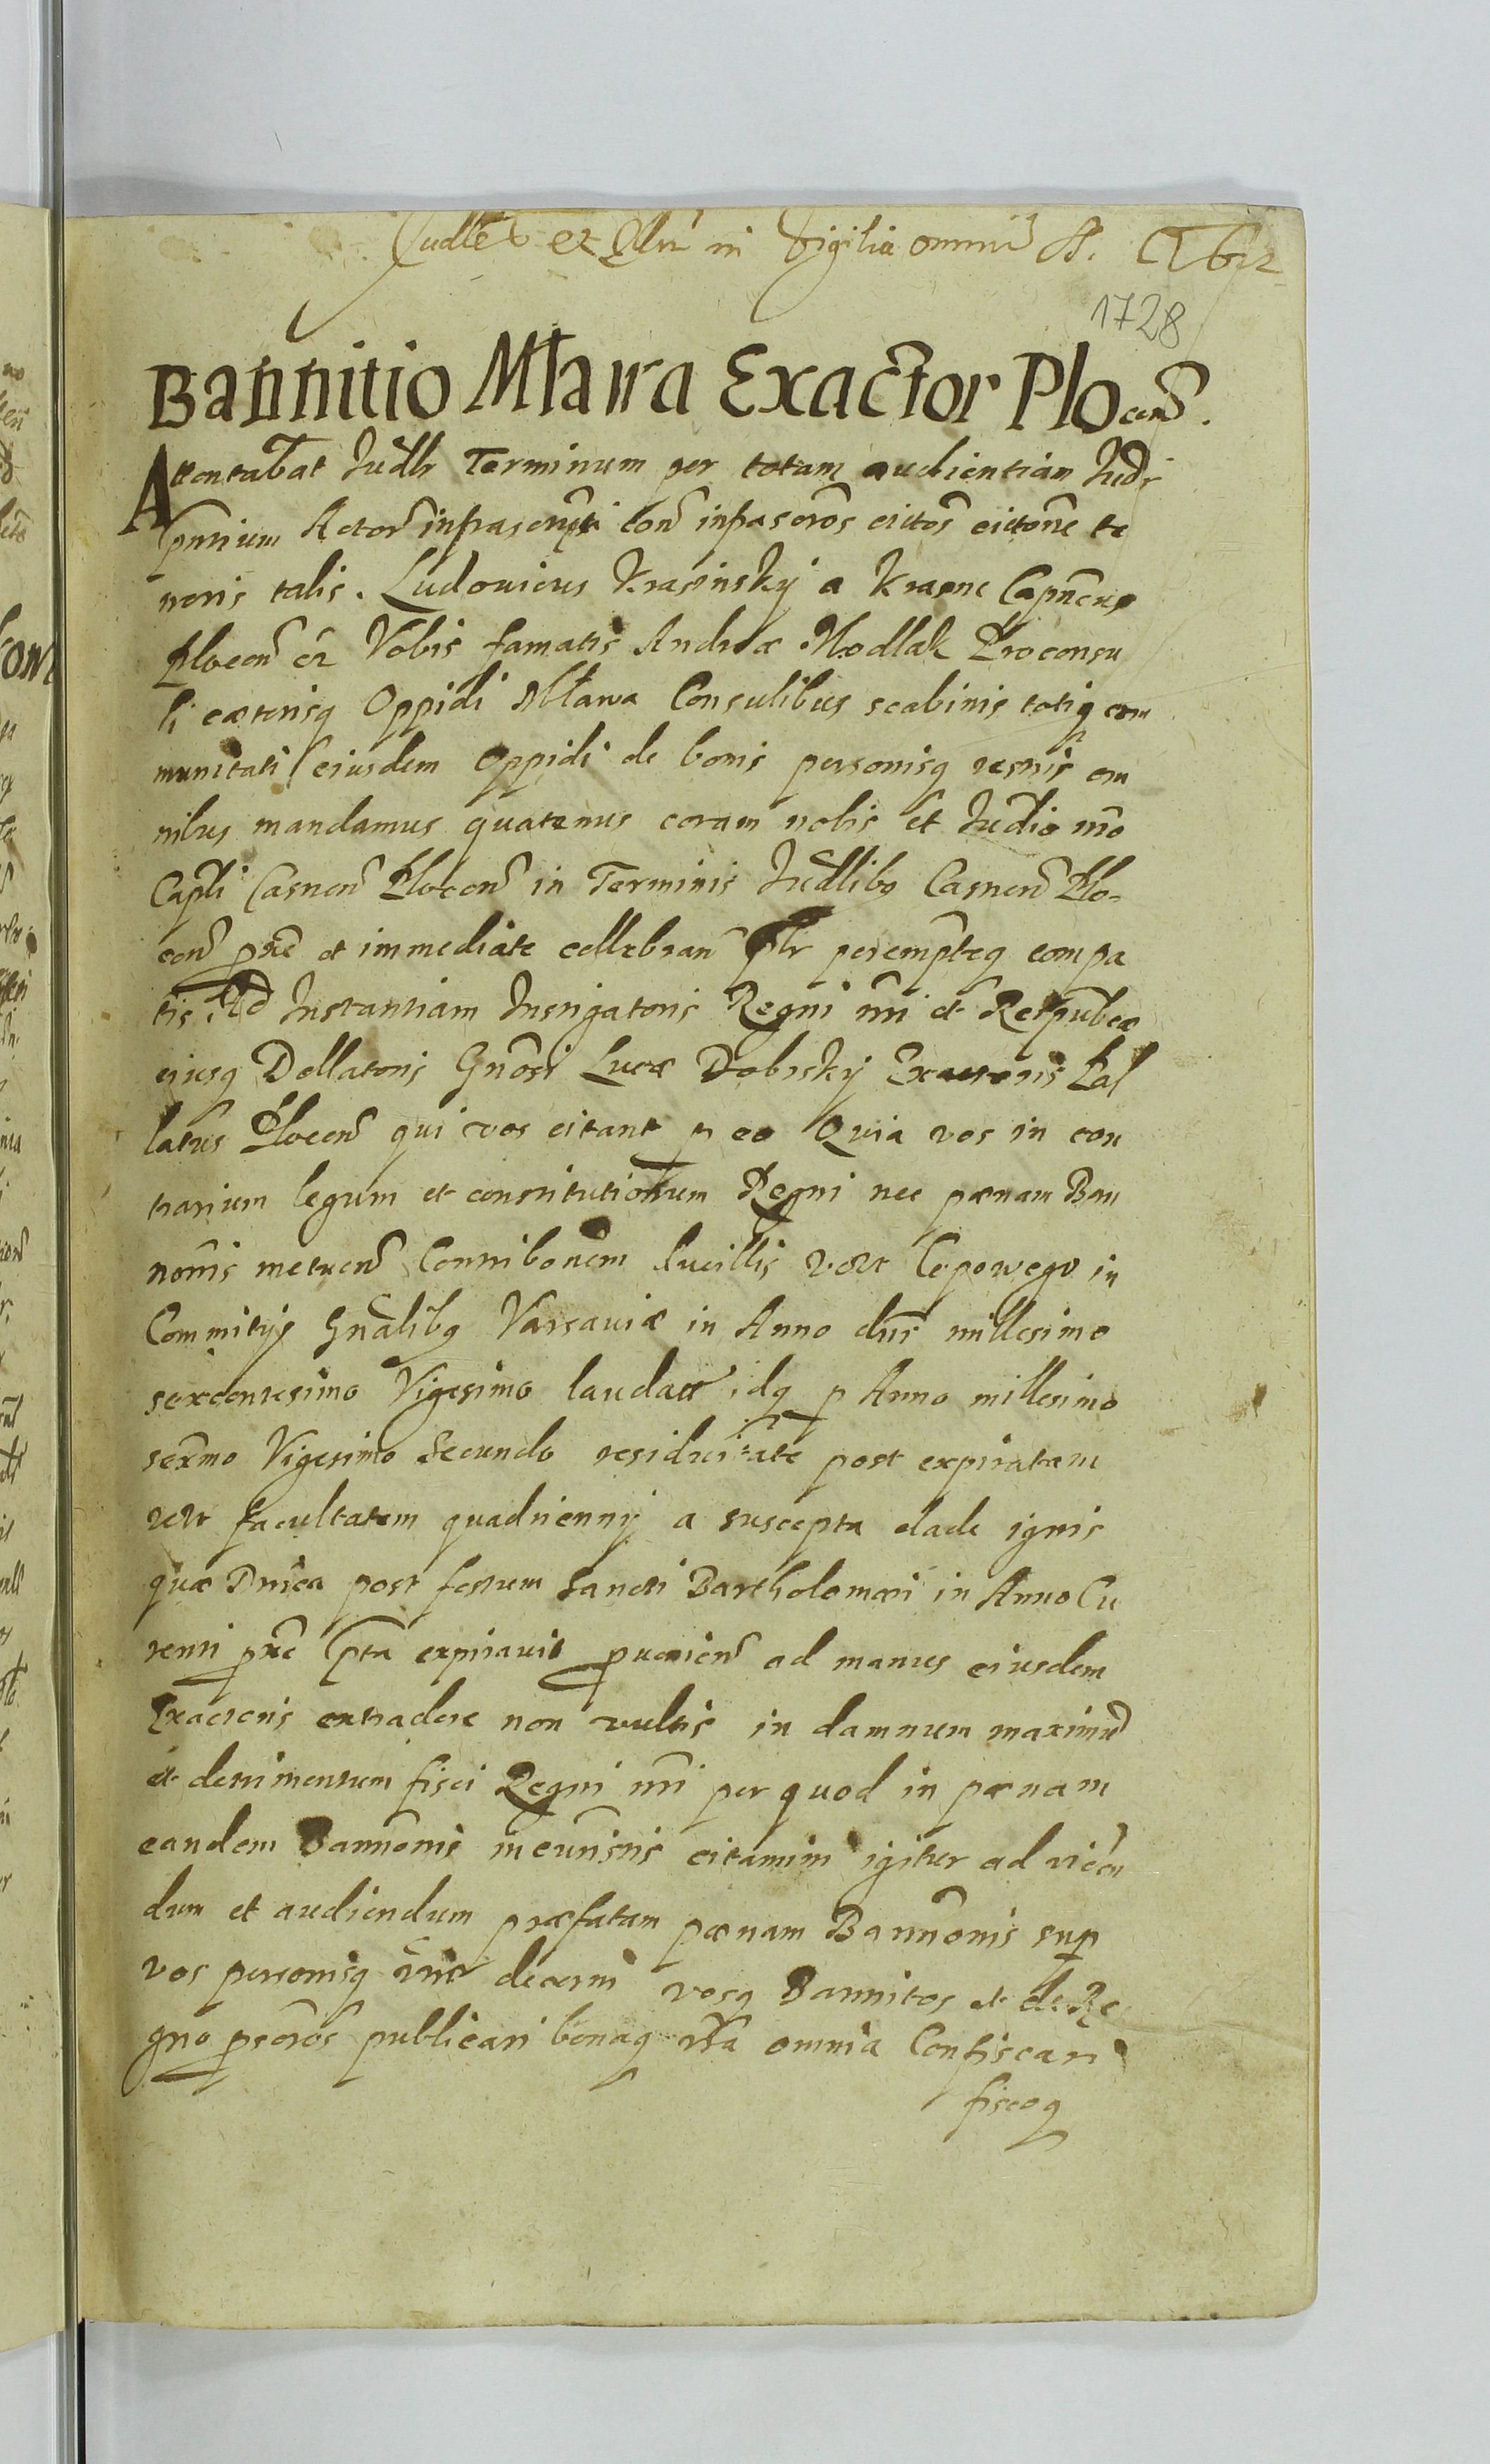 Judlẽ et Plu in Vigilia omniũ S. A
1728
Bannitio Mława Exactor Plocen̄.
Attentabat Judlr Terminum per totam audientiam Judi
pn̄tium Actor infrascripti con infrascros citos citone te
noris talis. Ludovicus Krasinsky a Krasne Capneus
Plocen̄ et Vobis famatis Andreæ Modlak Proconsu
li cæterisq Oppidi Mława Consulibus scabinis totiq com
munitati eiusdem Oppidi de bonis personisq vestris om
nibus mandamus quatenus coram nobis et Judio nro
Capli Casnen̄ Plocen̄ in Terminis Judlibq Casnen̄ Plo-
cen̄ prx̄e et immediate cellebran̄ plr peremptieq compa
tis. Ad Instantiam Instigatoris Regni nri et Reipubcæ
ejusq Dellatoris Gnosi Lucæ Dobrsky Exactoris Pal
latus Plocen̄ qui vos citant p eo Quia vos in con
trarium legum et constitutionum Regni nec pænam Ban
nonis metuen̄ Contribonem ducillis Vert Czopowego in
Commitijs Gnalibq Varsaviæ in Anno dni millesimo
sexcentesimo Vigesimo laudatt idq p Anno millesimo
sexmo Vigesimo Secundo residuitate post expiratam
vert facultatem quadriennij a suscepta clade ignis
quæ Dnica post festum Sancti Bartholomæi in Anno Cu
renti prx̄e pta expiravit pvenien̄ ad manus eiusdem
Exactoris extradere non vultis in damnum maximũ
et detrimentum fisci Regni nri per quod in pænam
eandem Bannonis incuristis citamini igitur ad viden
dum et audiendum præfatam pænam Bannonis sup
vos personisq vris decerni vosq Bannitos et de Re
gno pscros publicari bonaq vra omnia Confiscari
fiscoq